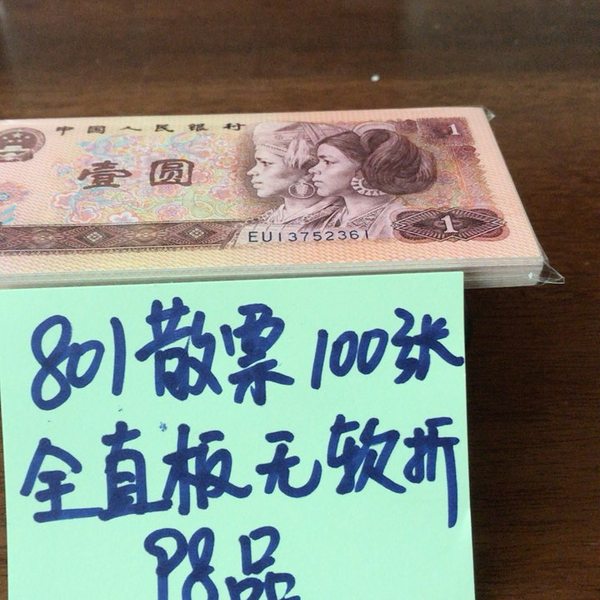 中国人民银行
1
壹圆
EU13752361
1
801散票100张
全直板无软折
98品